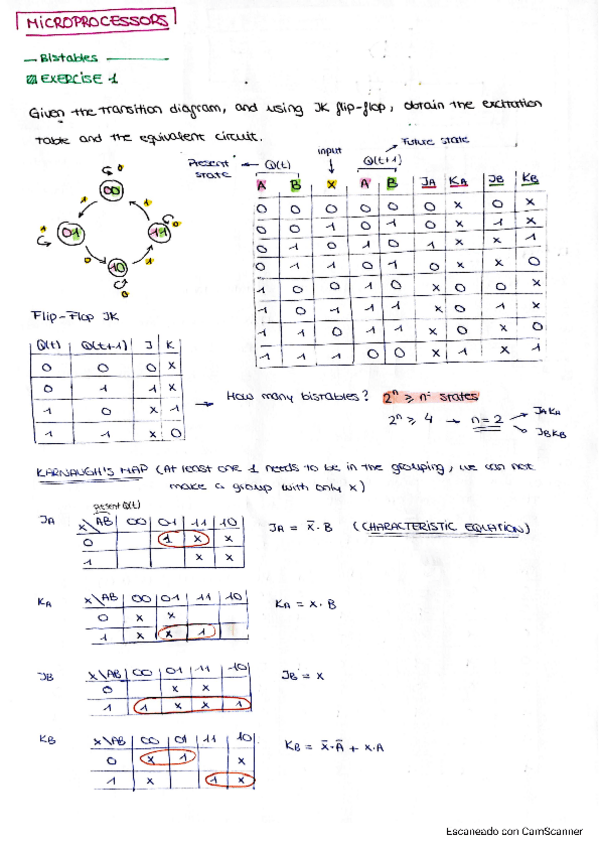 MICROPROCESSORS
Bistables
EXERCISE 1
Given the transition diagram, and using JK flip-flop, obtain the excitation
table and the equivalent circuit.
Present state
Q(t)
input
Q(t+1)
Future state
A B X A B JA KA JB KB
0 0 0 0 0 0 x 0 x
0 0 1 0 1 0 x 1 x
0 1 0 1 0 1 x x 1
0 1 1 0 1 0 x x 0
1 0 0 1 0 x 0 0 x
1 0 1 1 1 x 0 1 x
1 1 0 1 1 x 0 x 0
1 1 1 0 0 x 1 x 1
0
00
1 1
1 01 11 0
0 1
10
0
Flip-Flop JK
Q(t) Q(t+1) J K
0 0 0 x
0 1 1 x
1 0 x 1
1 1 x 0
→ How many bistables? 2ⁿ ≥ nº states
2ⁿ ≥ 4 → n = 2 → JAKA
JBKB
KARNAUGH'S MAP (At least one 1 needs to be in the grouping, we can not
make a group with only x)
present Q(t)
JA X\AB 00 01 11 10
0 1 x x
1 x x
JA = x̄·B (CHARACTERISTIC EQUATION)
KA X\AB 00 01 11 10
0 x x
1 x x 1
KA = x·B
JB X\AB 00 01 11 10
0 x x
1 1 x x 1
JB = x
KB X\AB 00 01 11 10
0 x 1 x
1 x 1 x
KB = x̄·Ā + x·A
Escaneado con CamScanner